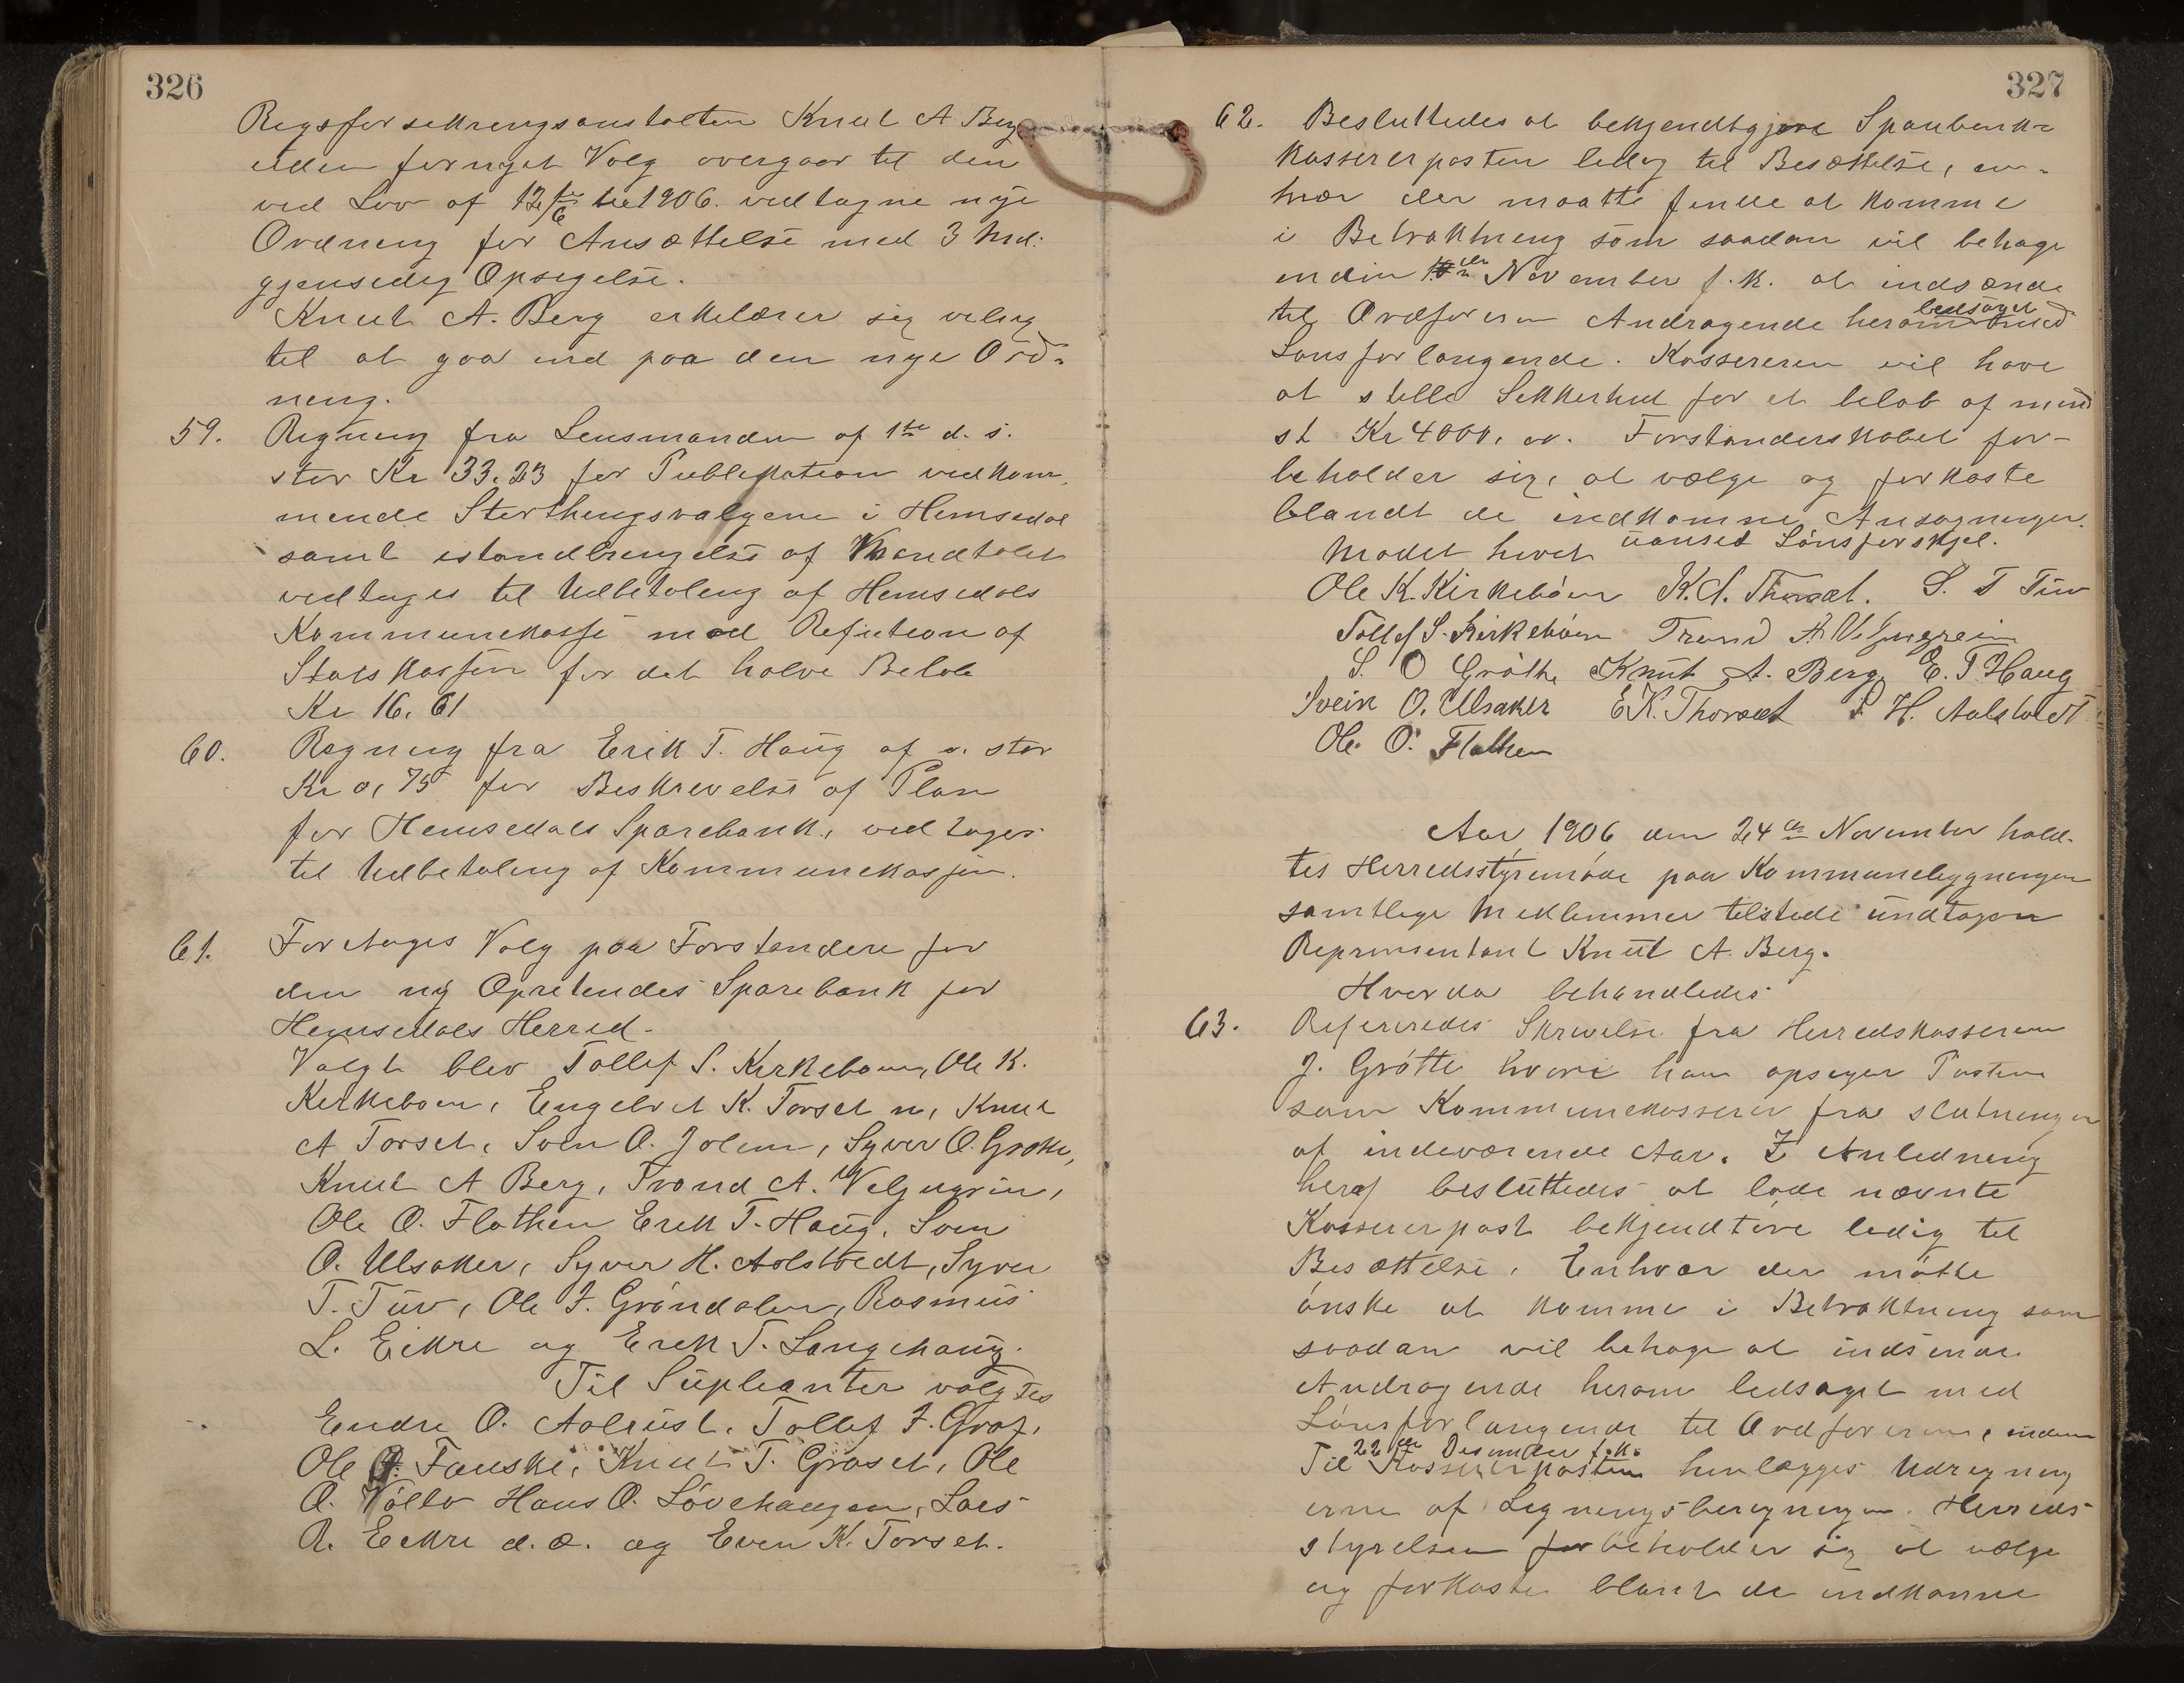 326
Rigsforsekringsanstalten Knut A Berg
uden fornyet Valg overgaar til den
ved Lov af 12/6 1906. vedtagne nye
Ordning for Ansættelse med 3 Md:
gjensedig Opsigelse.
Knut A. Berg erkelærer sig velig
til at gaa ind paa den nye Ord-
neng.
59. Regning fra Lensmanden af 1ste d. s.
stor Kr 33.23 for Publikation vedkom-
mende Storthingsvalgene i Hemsedal
samt istandbringelse af Mandtalet
vedtages til Udbetaleng af Hemsedals
Kommunekasse mod Refution af
Statskassen for det halve Beløb
Kr 16.61
60. Regning fra Erik T. Haug af s. stor
Kr 0,75 for Beskrevelse af Plan
for Hemsedals Sparebank, vedtages
til Udbetaling af Kommunekassen.
61. Foretages Valg paa Forstandere for
den ny Opretendes Sparebank for
Hemsedals Herred.
Valgt blev Tollef S. Kirkeboen, Ole K.
Kirkeboen, Engebret K. Torset n, Knut
A Torset, Sven O. Jolen, Syver O. Grøthe,
Knut A Berg, Trond A. Veljugrein,
Ole O. Flathen Erik T. Haug, Sven
O. Ulsaker, Syver H. Aalstvedt, Syver
T. Tuv, Ole I. Gröndalen, Rasmus
L. Eikre og Erik T. Langehaug.
Til Supleanter valgtes
Endre O. Aalrust, Tollef I. Graf,
Ole O. Fauske, Knut T. Graset, Ole
O. Vøllo Hans O. Lövehaugen, Lars
R. Eikre d. æ. og Even K. Torset.
327
62. Besluttedes at bekjendtgjøre Sparbank-
kassererposten ledig til Besættelse, en-
hver der maatte finde at komme
i Betraktning som saadan vil behage
inden November f. k. at indsænde
til Ordføreren Andragende herom ledsaget med
Lønsforlangende. Kassereren vil have
at stelle Sekkerhed for et beløb af mind
st Kr 4000,00. Forstanderskabet for-
beholder sig, at vælge og forkaste
blandt de indkomne Ansøgninger
uanset Lönsforskjel.
Mødet hevet
Ole K. Kirkeböen K. A. Thorset. S. T Tuv
Tollef S. Kirkeböen Trond A. Veljugrein
S. O Gröthe Knut A. Berg, E. T. Haug
Svein O. Ulsaker E K. Thorset S. H. Aalstvedt
Ole O. Flathen
Aar 1906 den 24de November hold-
tes Herredsstyremöde paa Kommunebygningen
samtlige Medlemmer tilstede undtagen
Reprensentant Knut A. Berg.
Hvorda behandledes
63. Refereredes Skrivelse fra Herredskassereren
J. Grötte hvori han opsiger Posten
som Kommunekasserer fra slutningen
af indeværende Aar. I Anledning
heraf besluttedes at lade nævnte
Kassererpost bekjendtöre ledig til
Besættelse. Enhver der mötte
önske at komme i Betraktning som
saadan vil behage at indsende
Andragende herom ledsaget med
Lönsforlangende til Ordføreren, inden
22de Desember f. k.
Til Kassererposten henlægges Udregning
erne af Legningsberegningen. Herreds-
styrelsen forbeholder sig at vælge
og forkaste blant de indkomne